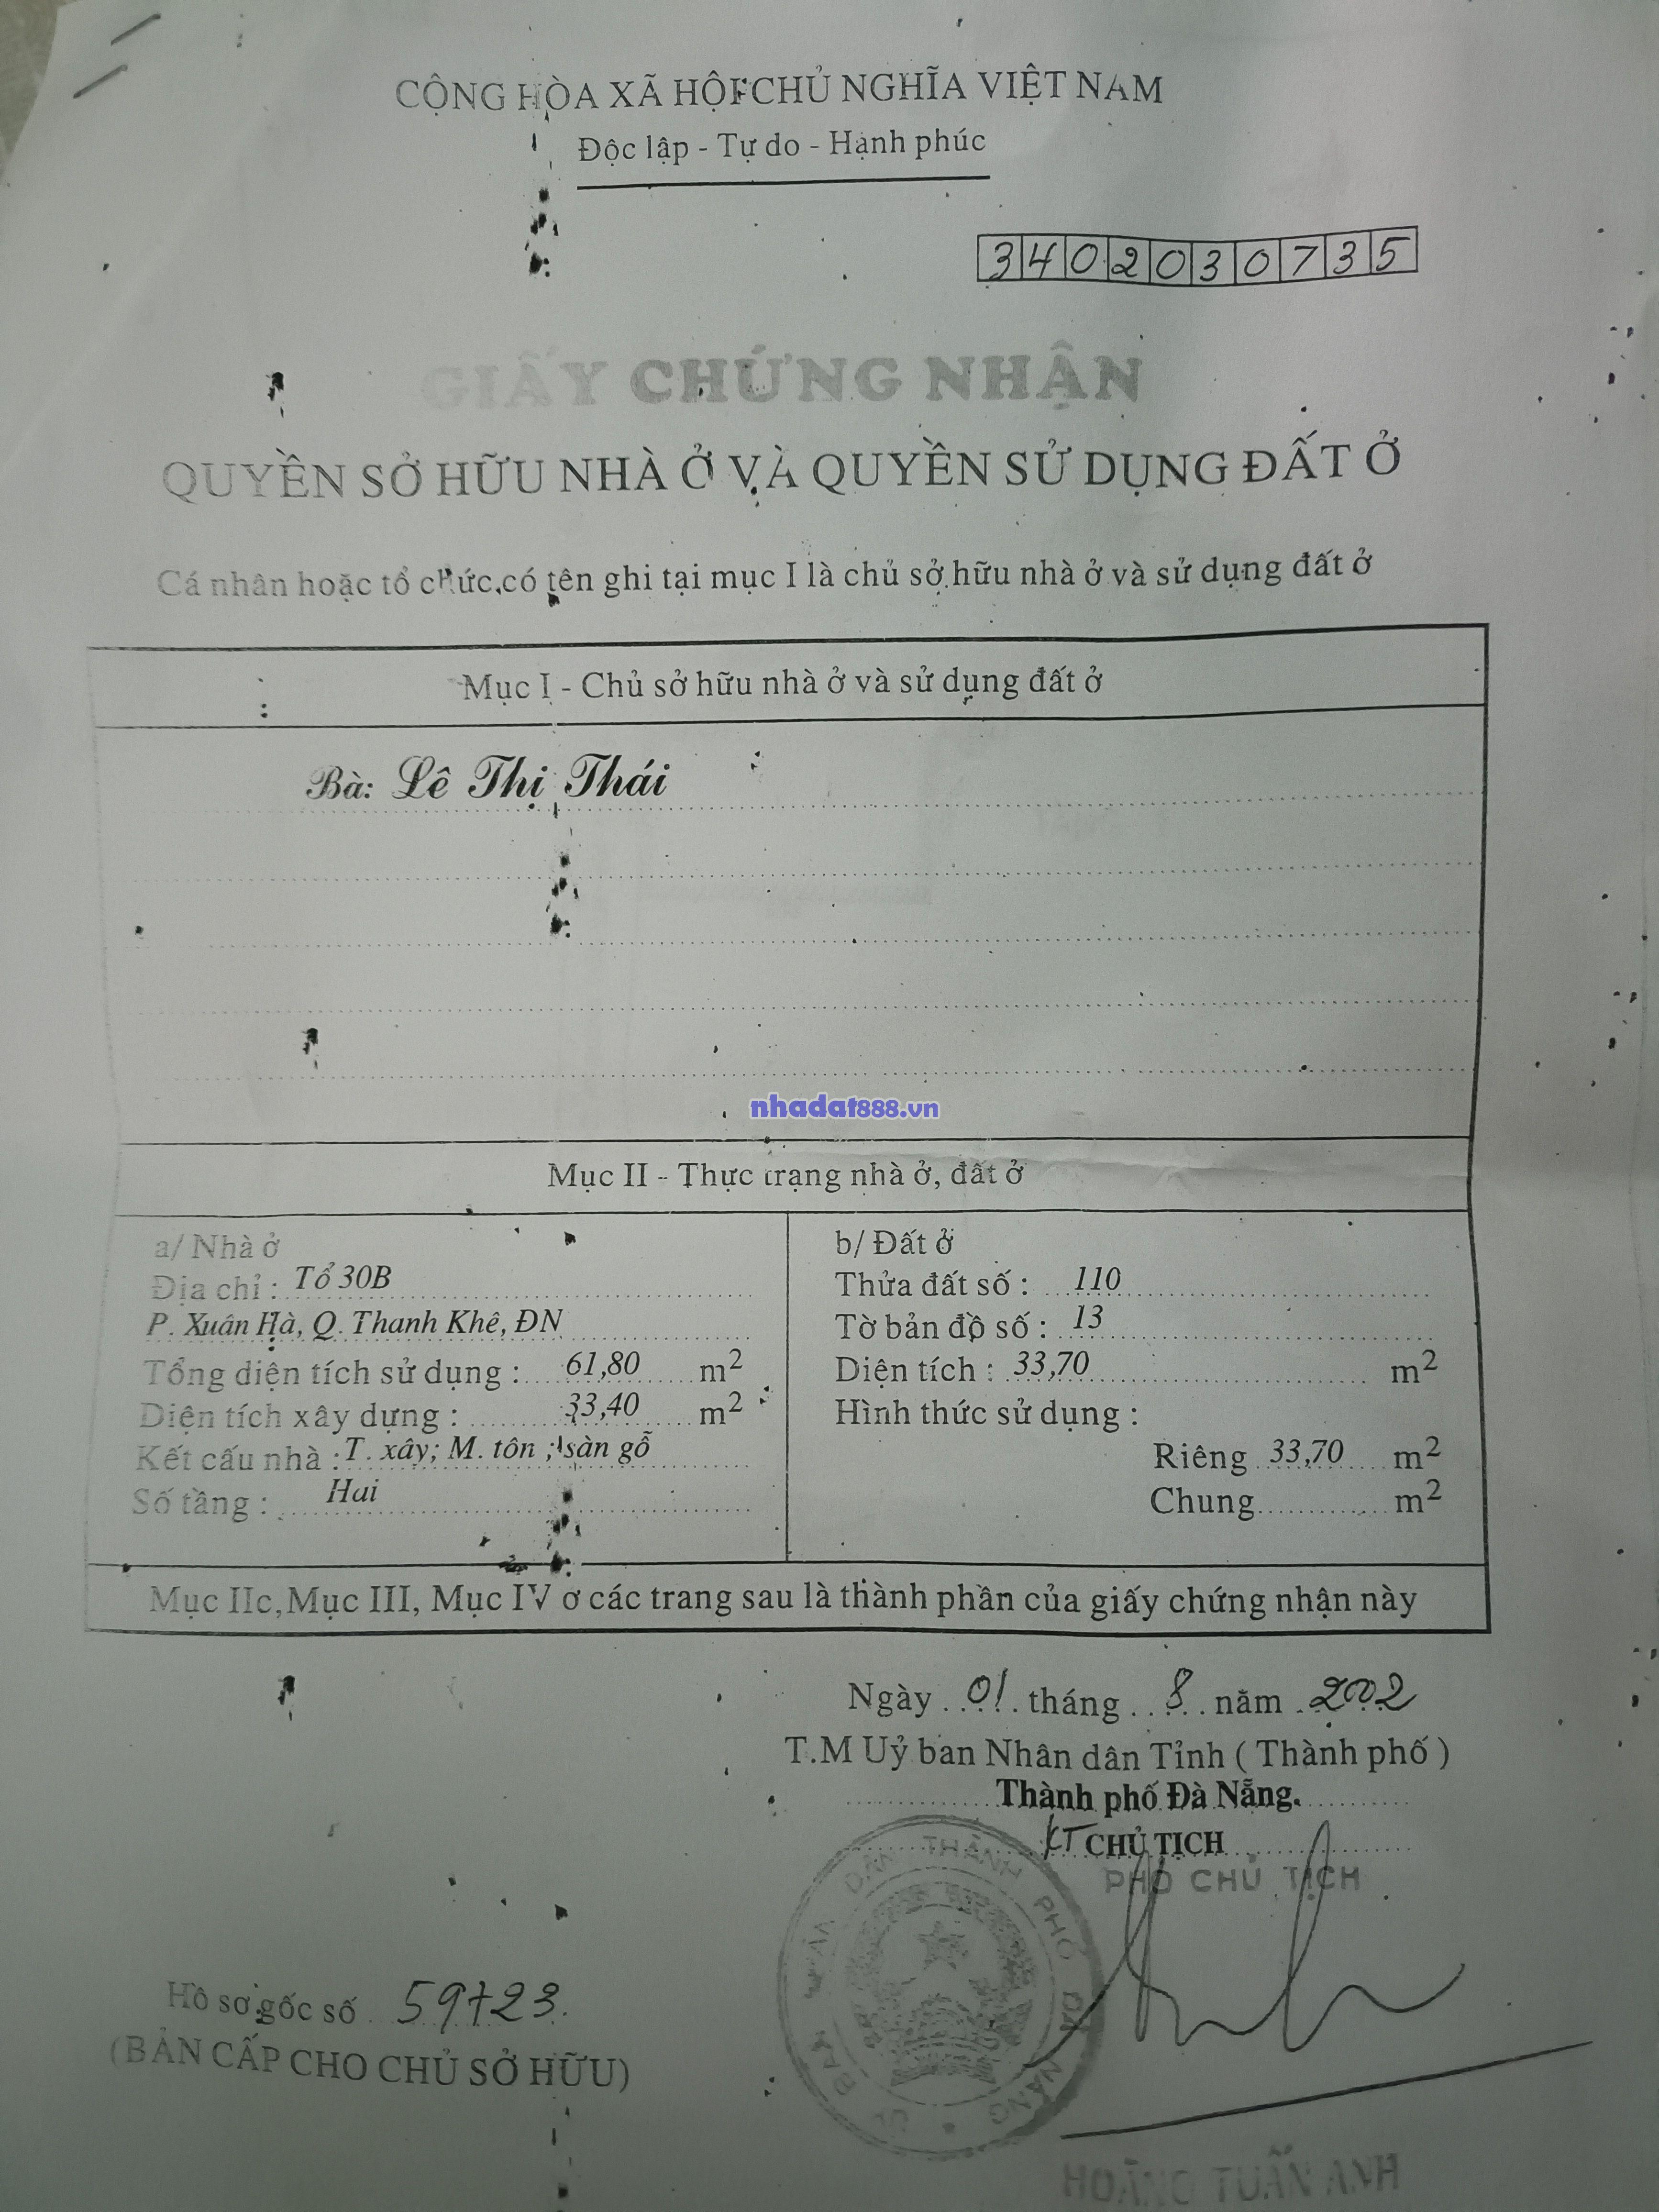 CỘNG HÒA XÃ HỘI CHỦ NGHĨA VIỆT NAM
Độc lập - Tự do - Hạnh phúc
3402030735
GIẤY CHỨNG NHẬN
QUYỀN SỞ HỮU NHÀ Ở VÀ QUYỀN SỬ DỤNG ĐẤT Ở
Cá nhân hoặc tổ chức có tên ghi tại mục I là chủ sở hữu nhà ở và sử dụng đất ở
Mục I - Chủ sở hữu nhà ở và sử dụng đất ở
Bà: Lê Thị Thái
nhadat888.vn
Mục II - Thực trạng nhà ở, đất ở
a/ Nhà ở
Địa chỉ : Tổ 30B
P. Xuân Hà, Q. Thanh Khê, ĐN
Tổng diện tích sử dụng : 61,80 m2
Diện tích xây dựng : 33,40 m2
Kết cấu nhà : T. xây; M. tôn ; sàn gỗ
Số tầng : Hai
b/ Đất ở
Thửa đất số : 110
Tờ bản đồ số : 13
Diện tích : 33,70 m2
Hình thức sử dụng :
Riêng 33,70 m2
Chung m2
Mục IIc, Mục III, Mục IV ở các trang sau là thành phần của giấy chứng nhận này
Ngày 01 tháng 8 năm 2002
T.M Uỷ ban Nhân dân Tỉnh ( Thành phố )
Thành phố Đà Nẵng.
KT CHỦ TỊCH
PHÓ CHỦ TỊCH
DÂN THÀNH PHỐ ĐÀ NẴNG
Hồ sơ gốc số 59723.
(BẢN CẤP CHO CHỦ SỞ HỮU)
HOÀNG TUẤN ANH